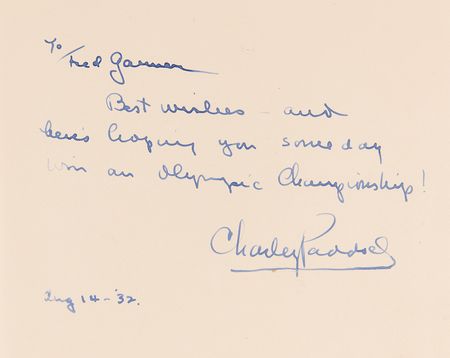 To/Fred Garner
Best wishes - and
here's hoping you some day
win an Olympic Championship!
Charley Paddock
Aug 14-'32.